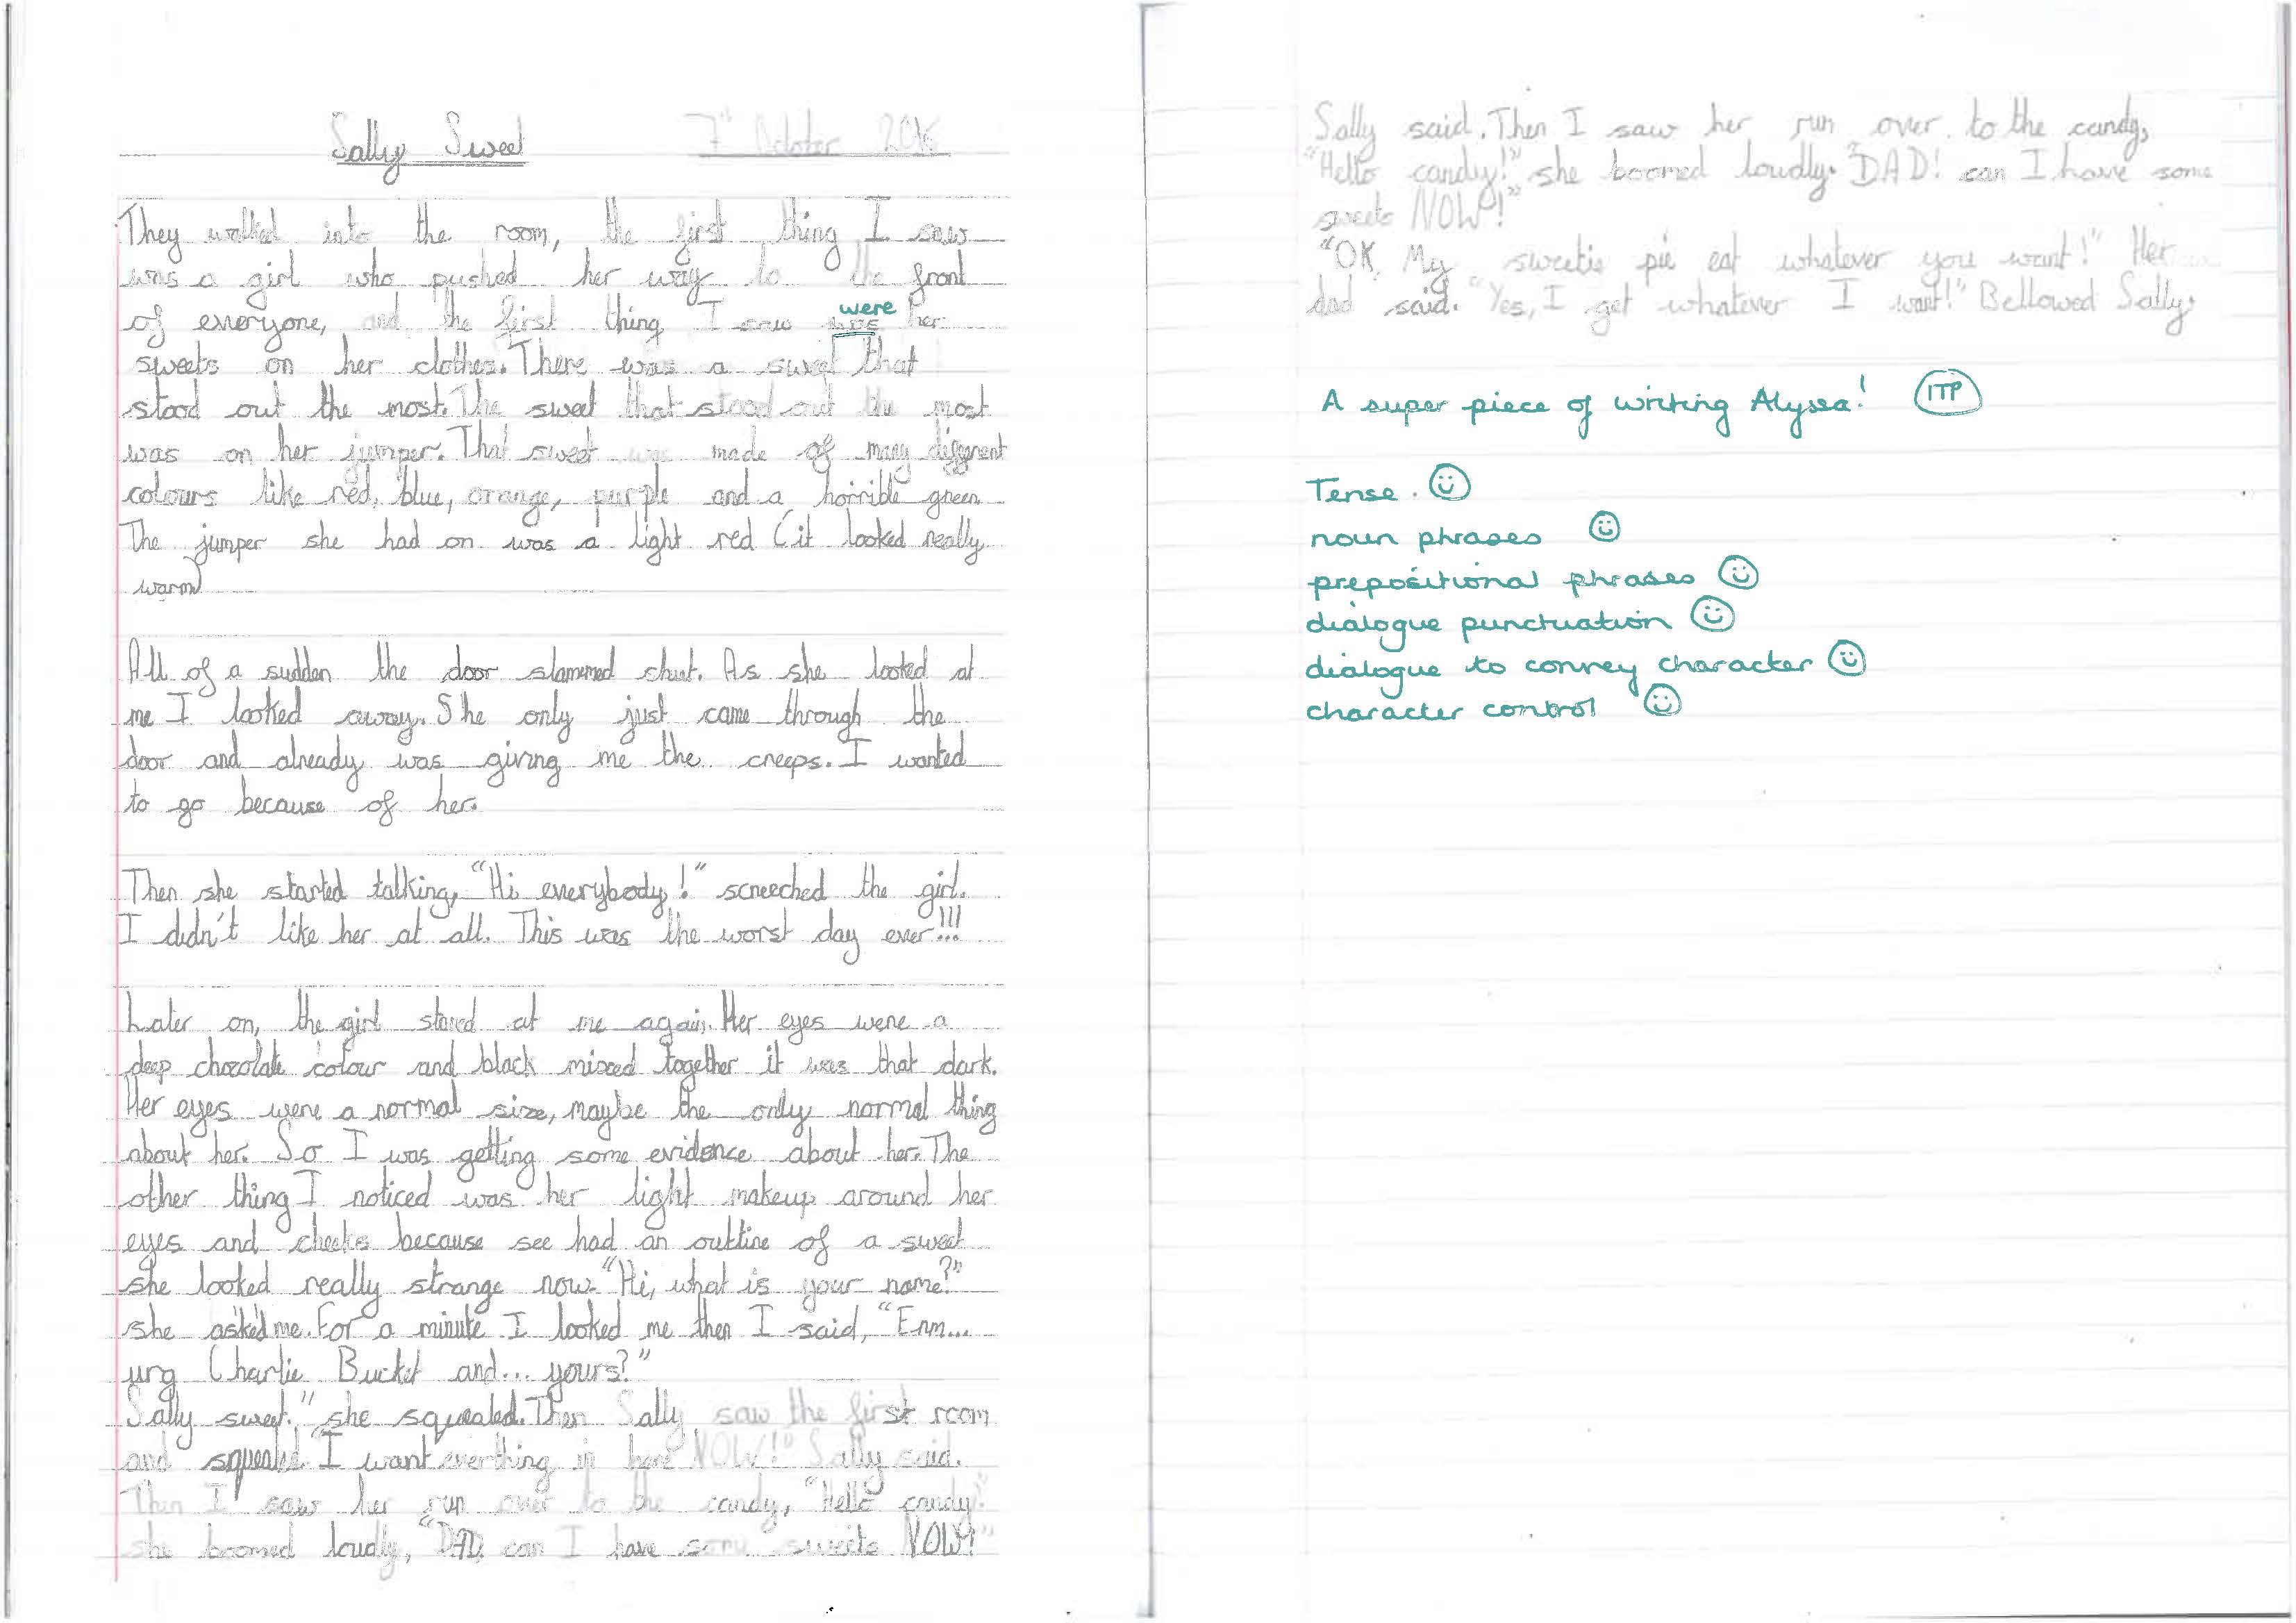 Sally Sweet 7th October 2016
They walked into the room, the first thing I saw
was a girl who pushed her way to the front
were
of everyone, and the first thing I saw was her
sweets on her clothes. There was a sweet that
stood out the most. The sweet that stood out the most
was on her jumper. That sweet was made of many different
colours like red, blue, orange, purple and a horrible green.
The jumper she had on was a light red (it looked really
warm)
All of a sudden the door slammed shut. As she looked at
me I looked away. She only just came through the
door and already was giving me the creeps. I wanted
to go because of her.
Then she started talking, "Hi everybody!" screeched the girl.
I didn't like her at all. This was the worst day ever!!!
Later on, the girl stared at me again. Her eyes were a
deep chocolate colour and black mixed together it was that dark.
Her eyes were a normal size, maybe the only normal thing
about her. So I was getting some evidence about her. The
other thing I noticed was her light makeup around her
eyes and cheeks because see had an outline of a sweet
she looked really strange now. "Hi, what is your name?"
she asked me. For a minute I looked me then I said, "Erm...
urg Charlie Bucket and... yours?"
Sally sweet." she squealed. Then Sally saw the first room
and squealed "I want everthing in here NOW!" Sally said.
Then I saw her run over to the candy, "Hello candy!"
she boomed loudly, "DAD can I have some sweets NOW!"
Sally said. Then I saw her run over to the candy,
"Hello candy!" she boomed loudly. "DAD! can I have some
sweets NOW!"
"OK My sweetie pie eat whatever you want!" Her
dad said. "Yes, I get whatever I want!" Bellowed Sally.
A super piece of writing Alyssa! ITP
Tense.
noun phrases
prepositional phrases
dialogue punctuation
dialogue to convey character
character control